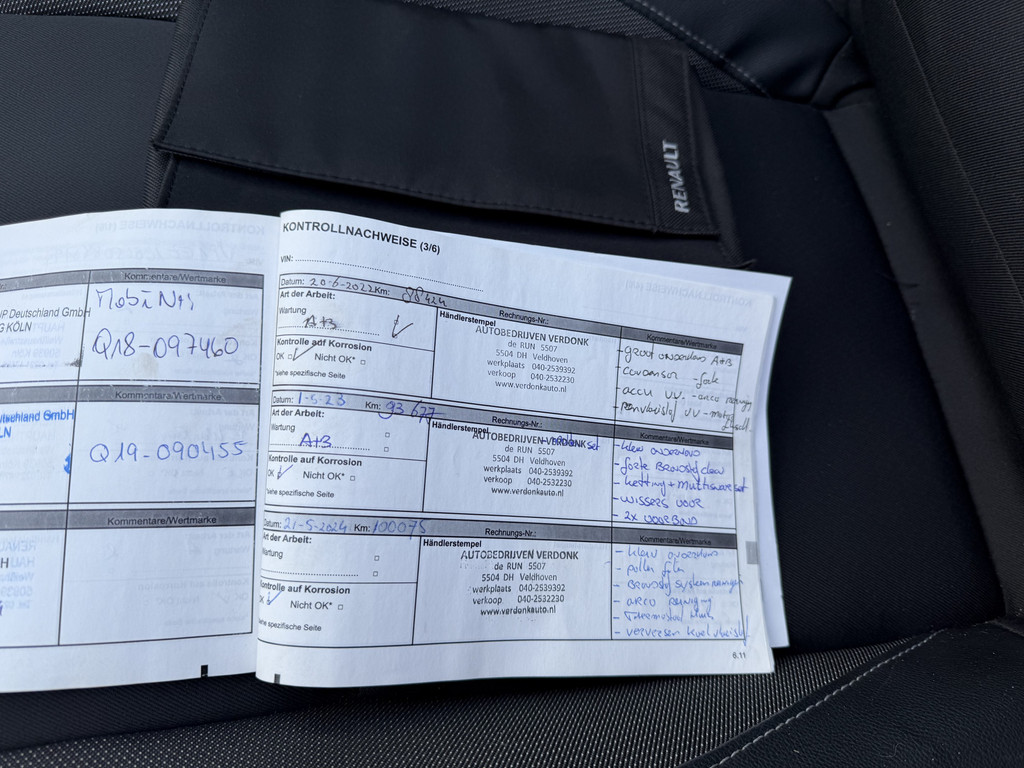 RENAULT
Kommentare/Wertmarke
P Deutschland GmbH
G KÖLN
Q18-097460
Kommentare/Wertmarke
utschland GmbH
LN
Q19-090455
Kommentare/Wertmarke
KONTROLLNACHWEISE (3/6)
VIN:
Datum: 20-6-2022 Km: 88424
Art der Arbeit:
Wartung
A+B
Kontrolle auf Korrosion
OK Nicht OK*
*siehe spezifische Seite
Rechnungs-Nr.:
Händlerstempel
AUTOBEDRIJVEN VERDONK
de RUN 5507
5504 DH Veldhoven
werkplaats 040-2539392
verkoop 040-2532230
www.verdonkauto.nl
Kommentare/Wertmarke
- groot onderhoud A+B
- condensor forte
Datum: 1-5-23 Km: 93677
Art der Arbeit:
Wartung
A+B
Kontrolle auf Korrosion
OK Nicht OK*
siehe spezifische Seite
Rechnungs-Nr.:
Händlerstempel
AUTOBEDRIJVEN VERDONK
de RUN 5507
5504 DH Veldhoven
werkplaats 040-2539392
verkoop 040-2532230
www.verdonkauto.nl
Kommentare/Wertmarke
- klein onderhoud
- ketting + multisnaar set
- wissers voor
- 2x voorband
Datum: 21-5-2024 Km: 100075
Art der Arbeit:
Wartung
Kontrolle auf Korrosion
OK Nicht OK*
siehe spezifische Seite
Rechnungs-Nr.:
Händlerstempel
AUTOBEDRIJVEN VERDONK
de RUN 5507
5504 DH Veldhoven
werkplaats 040-2539392
verkoop 040-2532230
www.verdonkauto.nl
Kommentare/Wertmarke
- klein onderhoud
- pollen filter
- Brandstof systeem reiniger
- airco reiniging
- verversen koelvloeistof
6.11